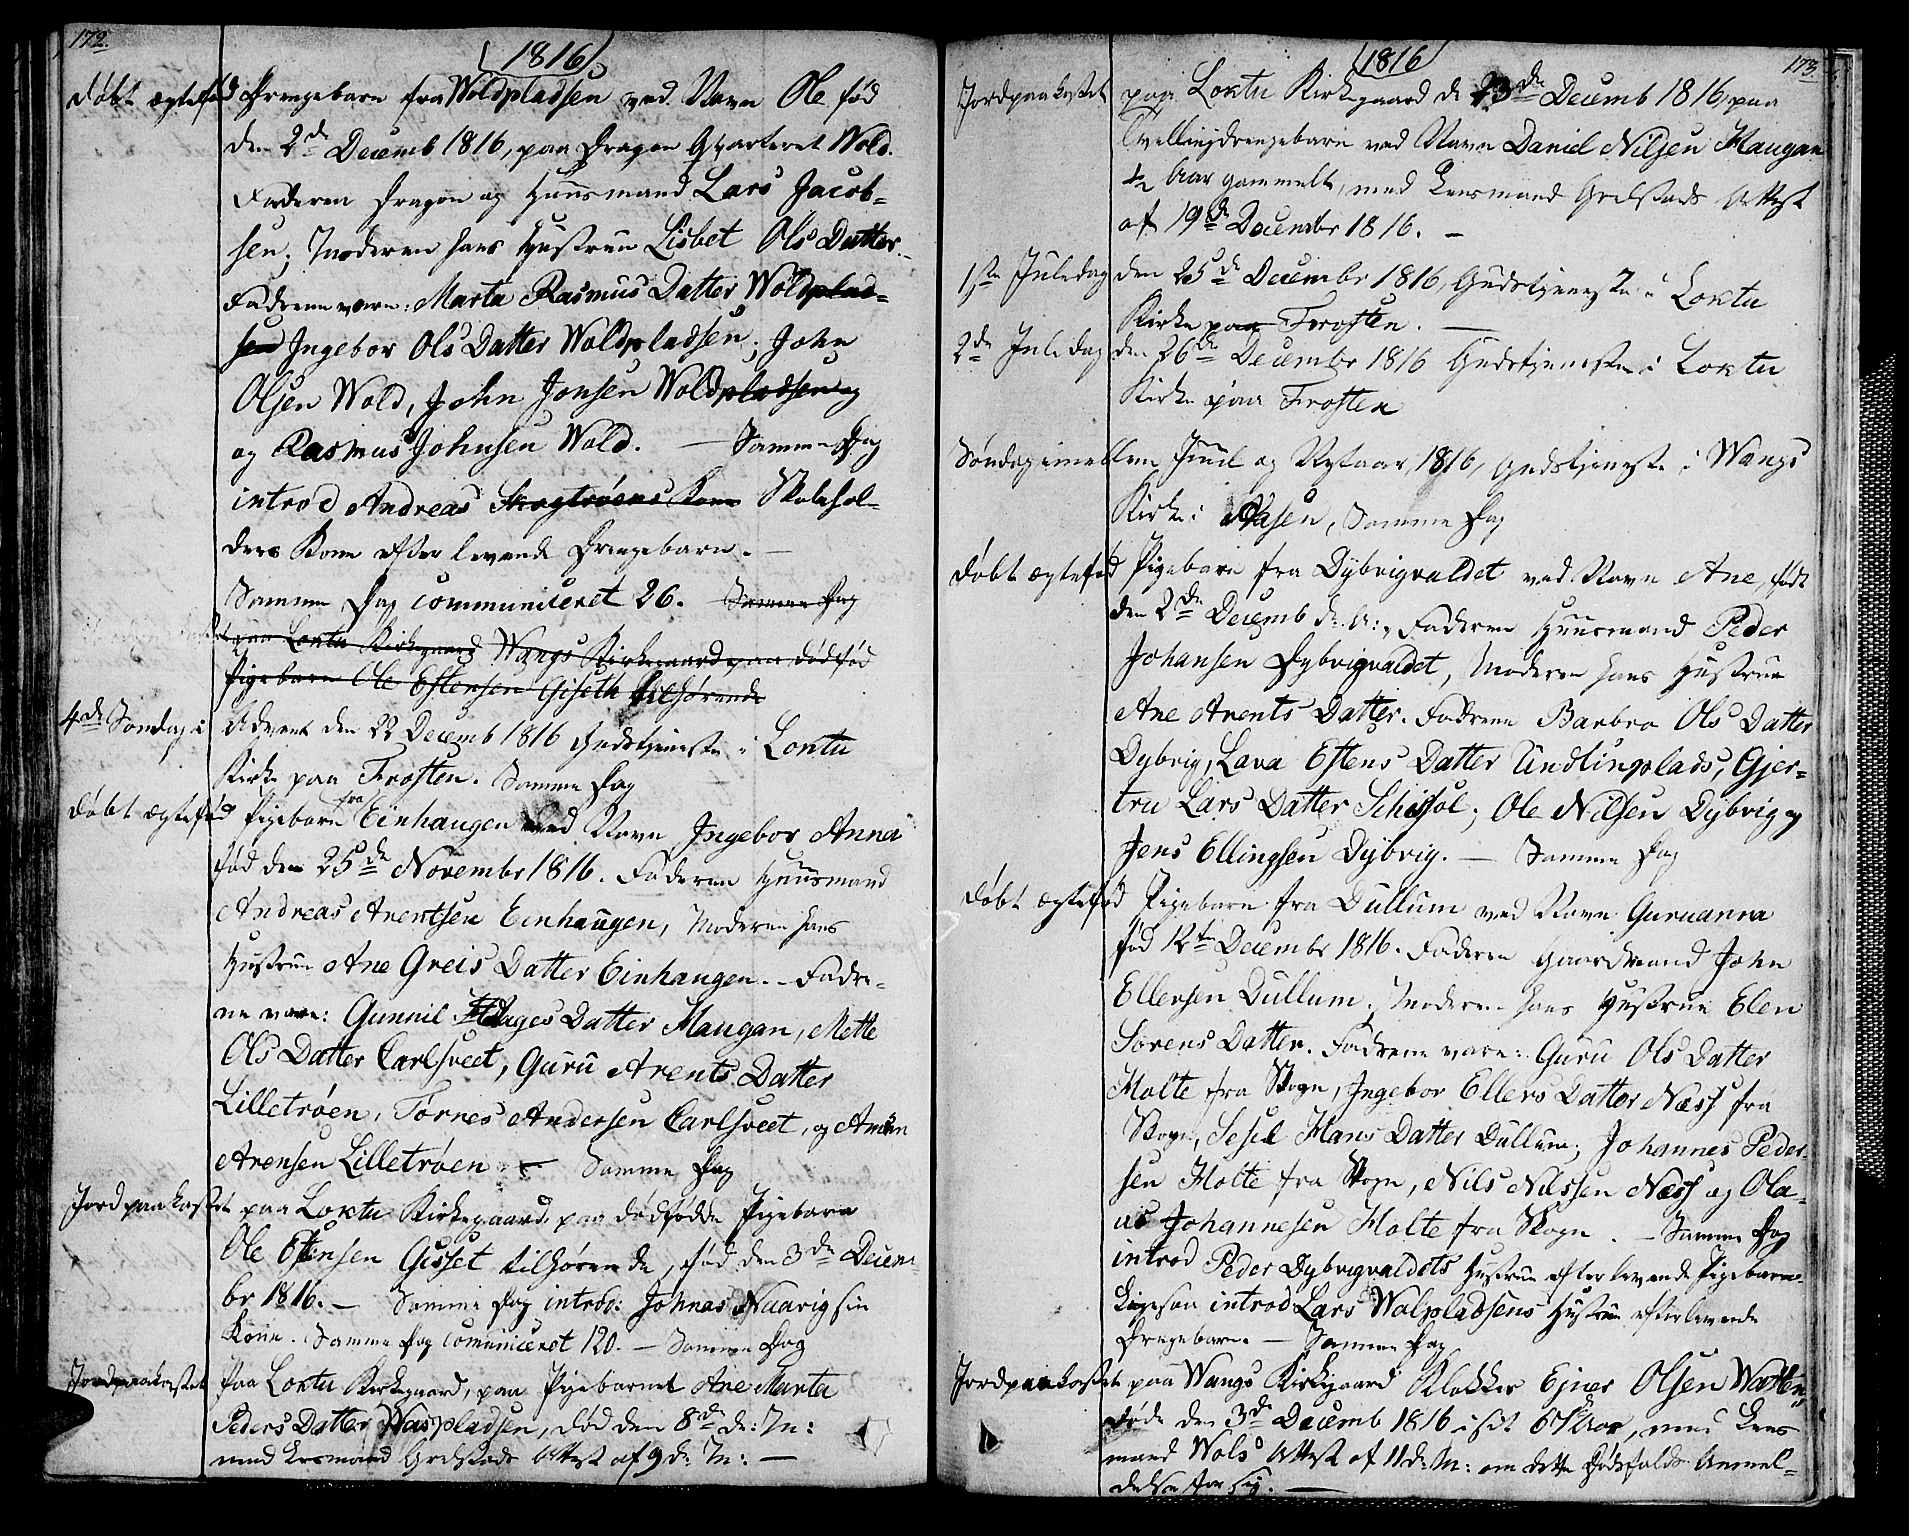 172.
1816
Døbt ægtefød Drengebarn fra Woldpladsen ved Navn Ole fød
den 2de Decemb 1816, paa Dragon Qvarteret Wold.
Faderen Dragon og Huusmand Lars Jacob-
sen; Moderen hans Hustrue Lisbet Ols Datter.
Fadrene vare: Marta Rasmus Datter Woldplad-
sen Ingebor Ols Datter Woldpladsen; John
Olsen Wold, John Jonsen Woldpladsen og
og Rasmus Johnsen Wold. — Samme Dag
introd Andreas Skogtrøens Kone Skolehol-
ders Kone efter levende Drengebarn. —
Samme Dag communiceret 26. Samme Dag
paa Loktu Kirkegaard Wangs Kirkegaard paa dødfød
Pigebarn Ole Estensen Giseth tilhørende
4de Søndag i Advent den 22 Decemb 1816 Gudstjeneste i Loktu
Kirke paa Frosten. Samme Dag
Døbt ægtefød Pigebarn fra Einhaugen ved Navn Ingebor Anna
fød den 25de Novembr 1816. Faderen Huusmand
Andreas Arentsen Einhaugen, Moderen hans
Hustrue Ane Greis Datter Einhaugen. - Fadre-
ne vare: Gunnil Hages Datter Haugan, Mette
Ols Datter Carlsveet, Guru Arents Datter
Lilletrøen, Tørnes Andersen Carlsveet, og
Arensen Lilletrøen — Samme Dag
Jordpaakastet paa Loktu Kirkegaard, paa dødfødde Pigebarn
Ole Estensen Gisset tilhørende, fød den 3de Decem
br 1816. — Samme Dag introd: Johnas Naavig sin
Kone. Samme Dag communiceret 120. — Samme Dag
Jordpaakastet paa Loktu Kirkegaard, paa Pigebarnet Ane Marta
Peders Datter Waspladsen, død den 8de d: M:
med Lensmand Gredstads Attest af 9 d: M: —
173.
1816
Jordpaakastet paa Loktu Kirkegaard d 23de Decemb 1816, paa
Tvellingdrengebarn ved Navn Daniel Nilsen Haugan
1/2 Aar gammelt, med Lensmand Gredstads Attest
af 19de Decembr 1816. —
1ste Juledag den 25de Decembr 1816, Gudstjeneste i Loktu
Kirke paa Frosten. —
2de Juledag den 26de Decembr 1816 Gudstjeneste i Loktu
Kirke paa Frosten
Søndag imellem Juul og Nytaar, 1816, Gudstjeneste i Wangs
Kirke i Aasen, Samme Dag
Døbt ægtefød Pigebarn fra Dybvigvaldet ved Navn Ane, født
den 2de Decemb d: A:, Faderen Huusmand Peder
Johansen Dybvigvaldet, Moderen hans Hustrue
Ane Arents Datter. Fadrene Barbro Ols Datter
Dybvig, Lava Estens Datter Undlinplads, Gjer-
tru Lars Datter Schesol; Ole Nilsen Dybvig og
Jens Ellingsen Dybvig. — Samme Dag
Døbt ægtefød Pigebarn fra Dullum ved Navn Guruanna
fød 12te Decembr 1816. Faderen Gaardmand John
Ellersen Dullum. Moderen hans Hustrue Elen
Sørens Datter. Fadrene vare: Guru Ols Datter
Holte fra Skogn, Ingebor Ellers Datter Næss fra
Skogn, Sesil Hans Datter Dullum; Johannes Peder-
sen Holte fra Skogn, Nils Nilssen Næss og Ola-
us Johannesen Holte fra Skogn. — Samme Dag
introd Peder Dybvigvaldets Hustrue efter levende Pigebarn.
Ligesaa introd Lars Wolpladsens Hustrue efter levende
Drengebarn. — Samme Dag
Jordpaakastet paa Wangs Kirkegaard Klokker Ejner Olsen Watten
døde den 3de Decemb 1816 i sit 67 Aar, med Lens
mand Wols Attest af 11 d: M: om dette Dødsfalds Anmel-
delse for sig. —